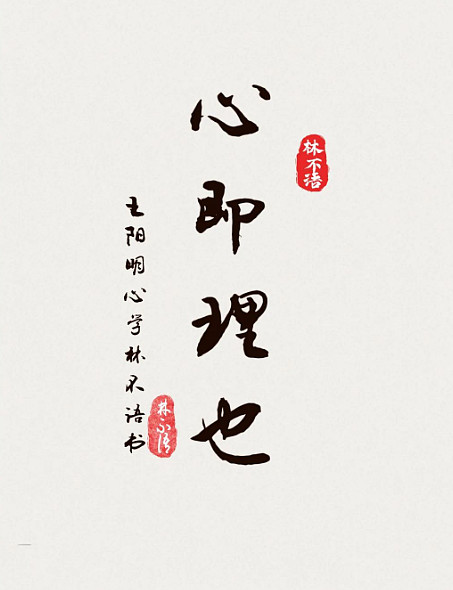 心即理也
林不语
王阳明心学林不语书
林不语